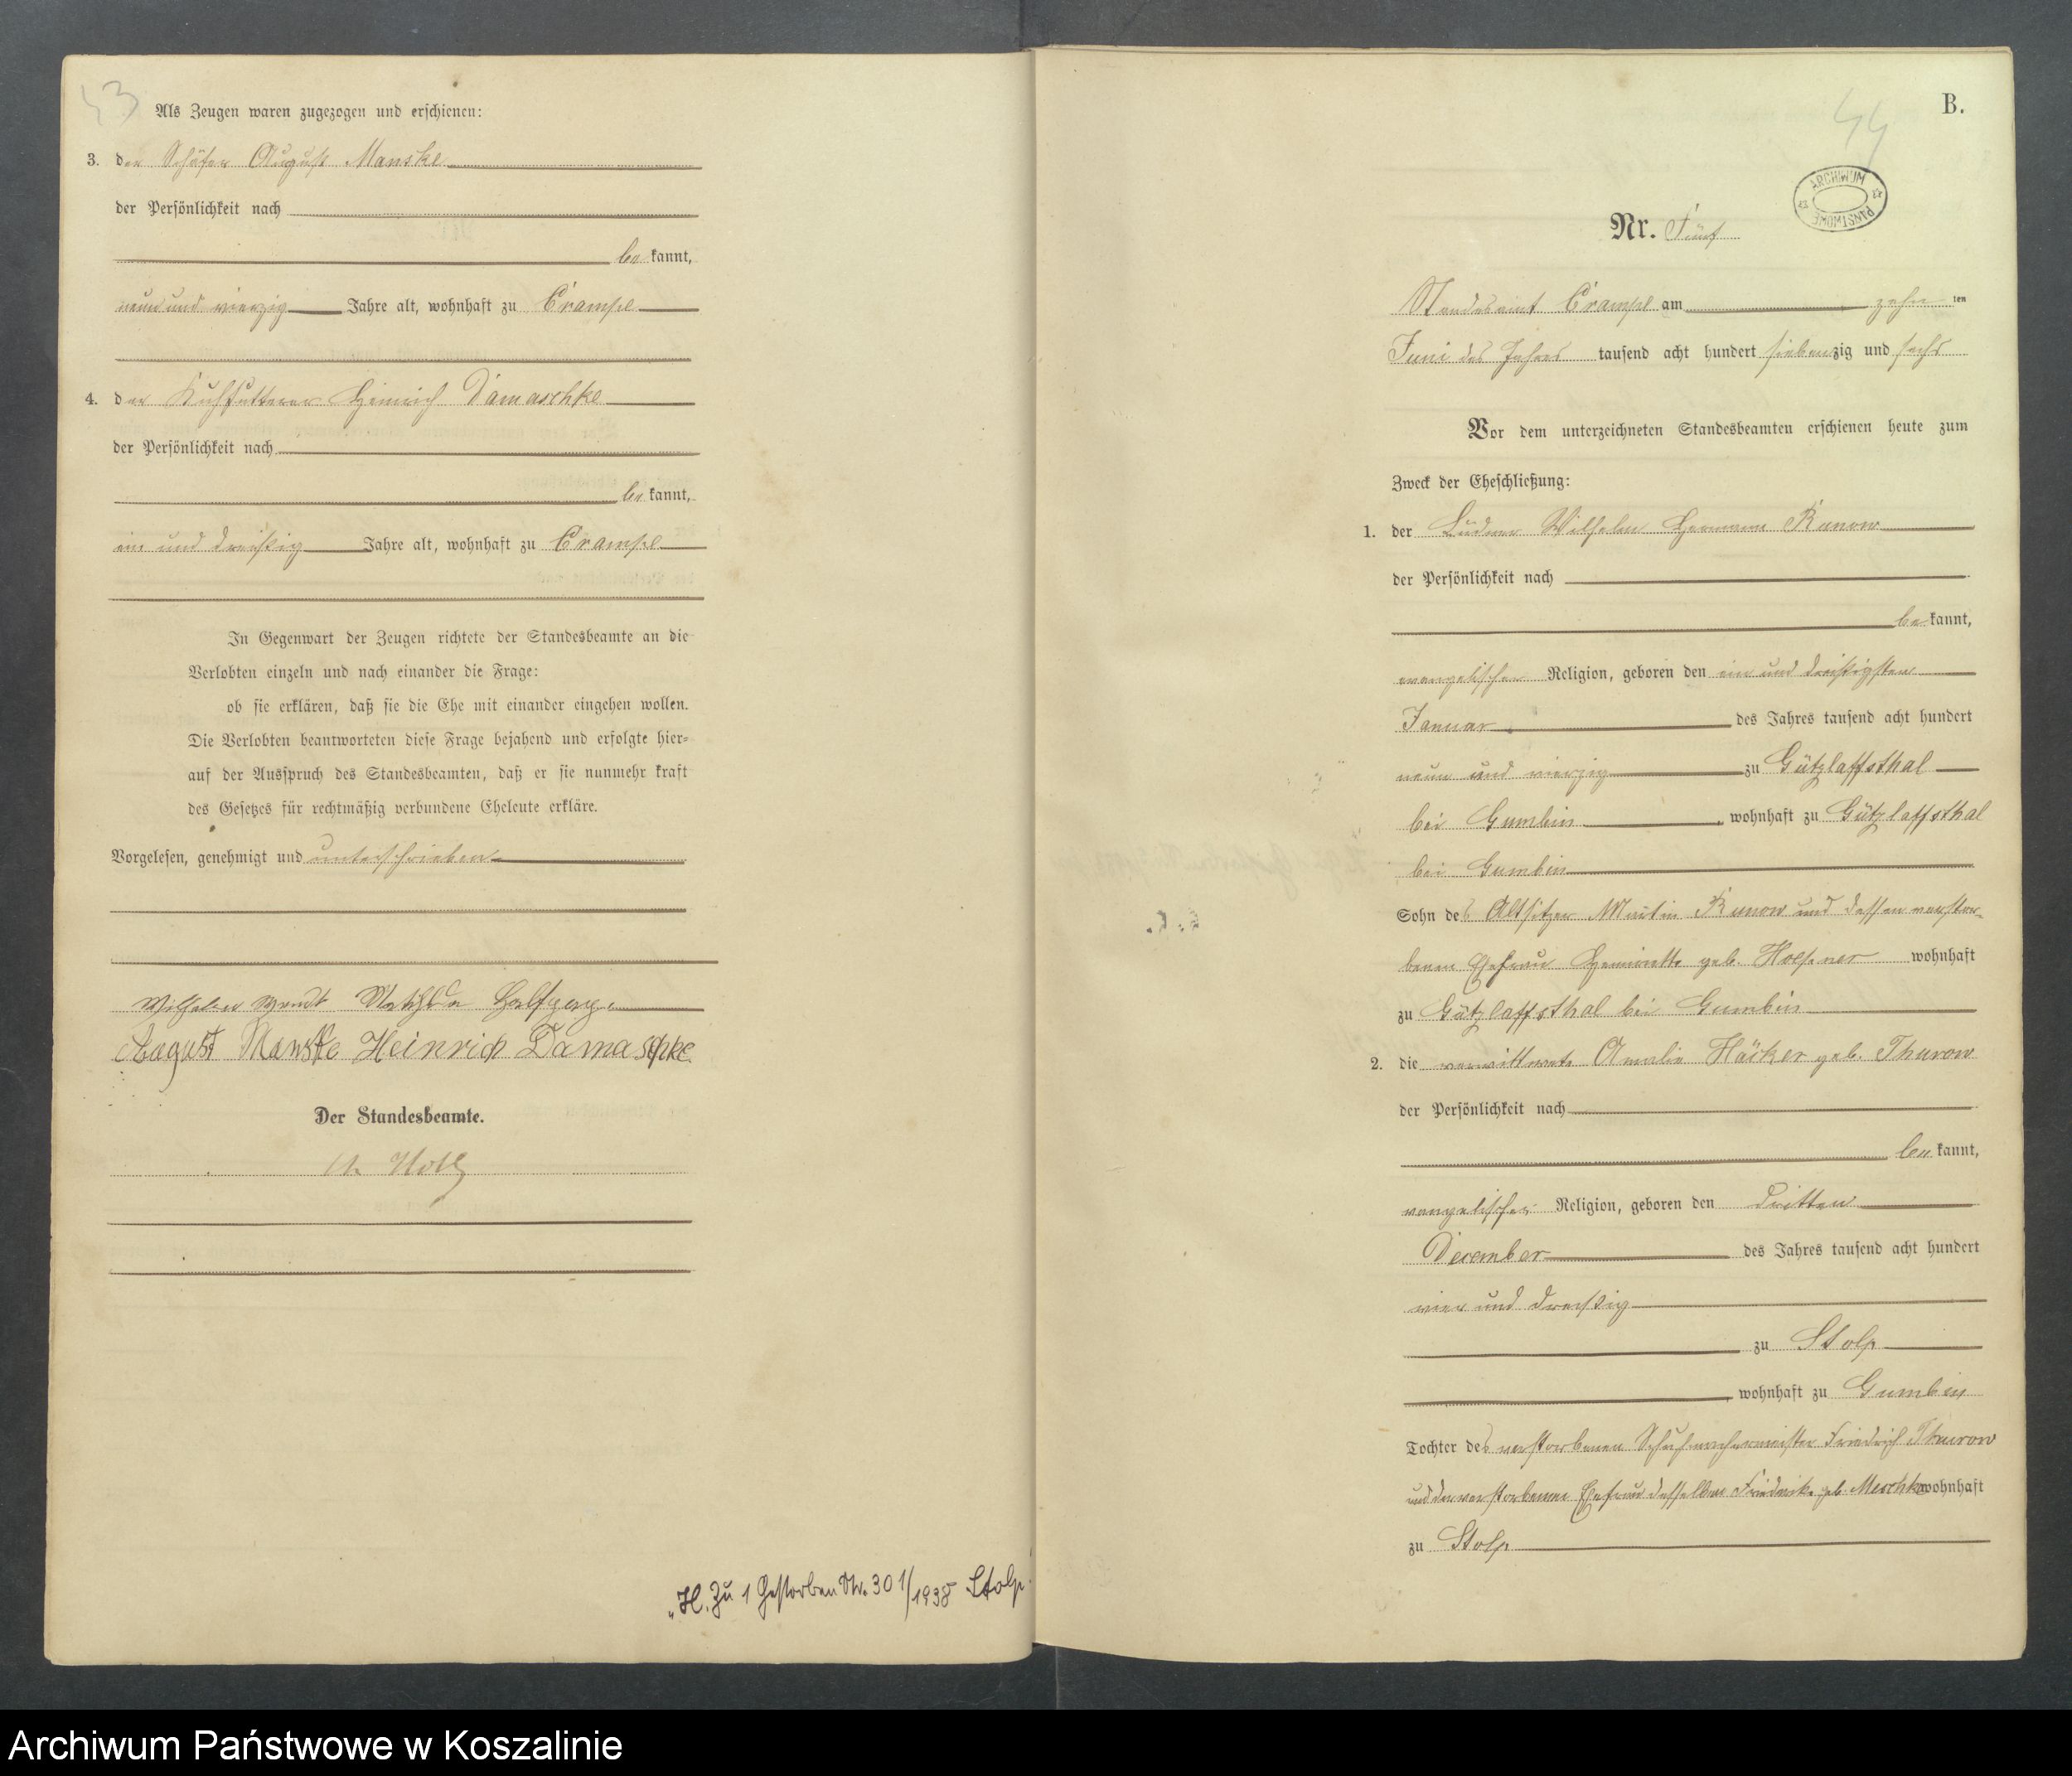 43
Als Zeugen waren zugezogen und erschienen:
3. der Schäfer August Manske
der Persönlichkeit nach
be kannt,
neun und vierzig Jahre alt, wohnhaft zu Crampe
4. der Kuhfutterer Heinrich Damaschke
der Persönlichkeit nach
be kannt,
ein und dreißig Jahre alt, wohnhaft zu Crampe
In Gegenwart der Zeugen richtete der Standesbeamte an die
Verlobten einzeln und nach einander die Frage:
ob sie erklären, daß sie die Ehe mit einander eingehen wollen.
Die Verlobten beantworteten diese Frage bejahend und erfolgte hier=
auf der Ausspruch des Standesbeamten, daß er sie nunmehr kraft
des Gesetzes für rechtmäßig verbundene Eheleute erkläre.
Vorgelesen, genehmigt und unterschrieben
Wilhelm Wendt Mathilde
August Manske Heinrich Damaschke
Der Standesbeamte.
H. Zu 1 Gestorben Nr. 301/1938 Stolp
44
B.
ARCHIWUM PAŃSTWOWE
Nr. Fünf
Standesamt Crampe am zehn ten
Juni des Jahres tausend acht hundert siebenzig und sechs
Vor dem unterzeichneten Standesbeamten erschienen heute zum
Zweck der Eheschließung:
1. der Büdner Wilhelm Hermann Runow
der Persönlichkeit nach
be kannt,
evangelischer Religion, geboren den ein und dreißigsten
Januar des Jahres tausend acht hundert
neun und vierzig zu Gützlaffsthal
bei Gumbin, wohnhaft zu Gützlaffsthal
bei Gumbin
Sohn des Altsitzer Martin Runow und dessen verstor-
benen Ehefrau Henriette geb. Hoepner wohnhaft
zu Gützlaffsthal bei Gumbin
2. die verwittwete Amalie Häcker geb. Thurow
der Persönlichkeit nach
be kannt,
evangelischer Religion, geboren den dritten
December des Jahres tausend acht hundert
vier und dreißig
zu Stolp
, wohnhaft zu Gumbin
Tochter des verstorbenen Schuhmachermeister Friedrich Thurow
und der verstorbenen Ehefrau desselben Friederike geb. Meschke wohnhaft
zu Stolp
Archiwum Państwowe w Koszalinie